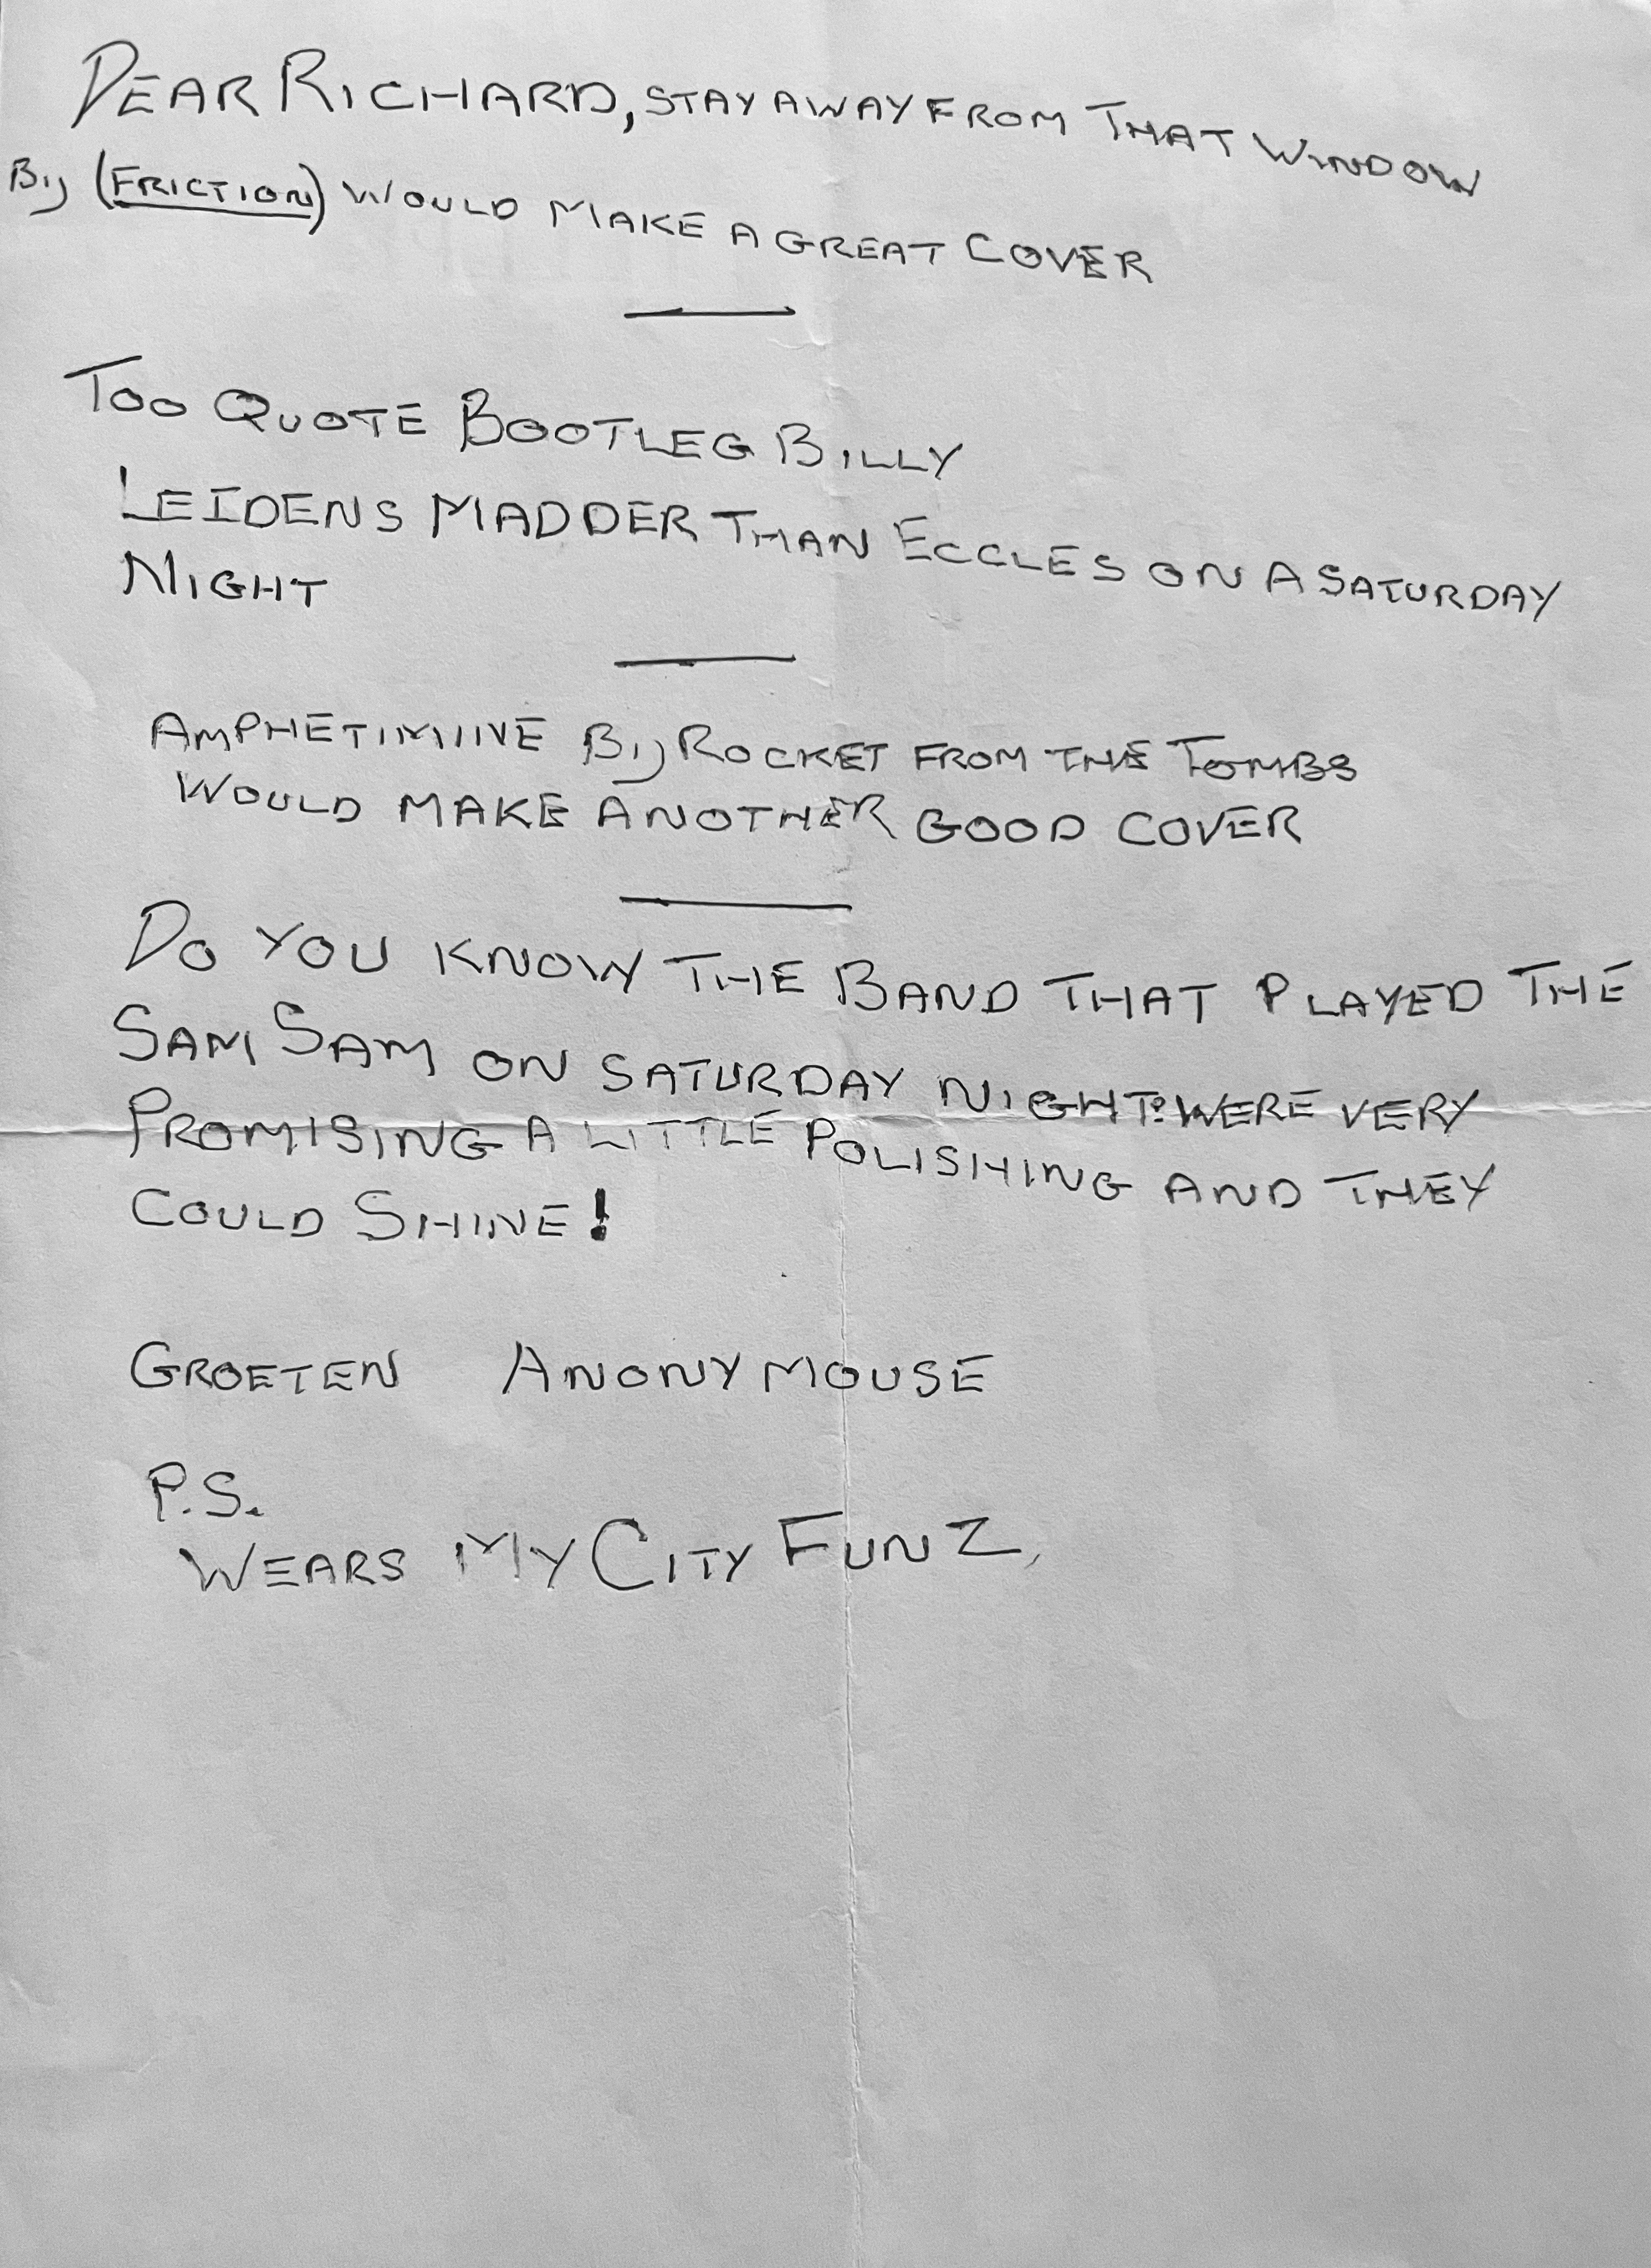 DEAR RICHARD, STAY AWAY FROM THAT WINDOW
By (FRICTION) WOULD MAKE A GREAT COVER
TOO QUOTE BOOTLEG BILLY
LEIDENS MADDER THAN ECCLES ON A SATURDAY
NIGHT
AMPHETIMINE By ROCKET FROM THE TOMBS
WOULD MAKE ANOTHER GOOD COVER
DO YOU KNOW THE BAND THAT PLAYED THE
SAM SAM ON SATURDAY NIGHT? WERE VERY
PROMISING A LITTLE POLISHING AND THEY
COULD SHINE!
GROETEN ANONYMOUSE
P.S.
WEARS MY CITY FUN Z,